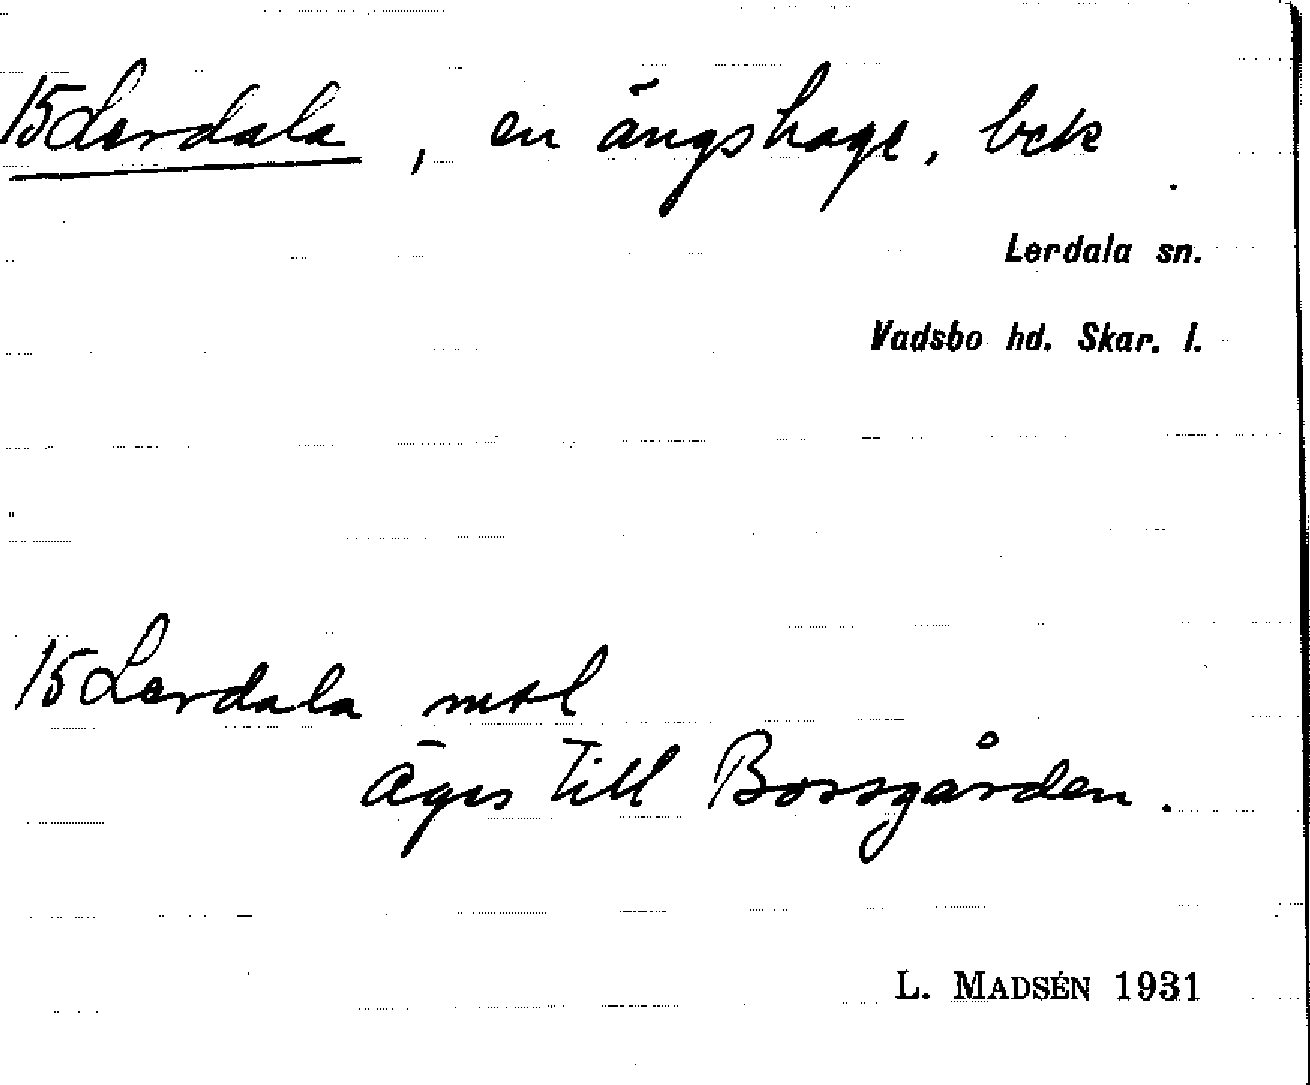 15 Lerdala, en ängshage, bck
Lerdala sn.
Vadsbo hd. Skar. l.
15 Lerdala mtl
Äges till Bossgården.
L. MADSÉN 1931